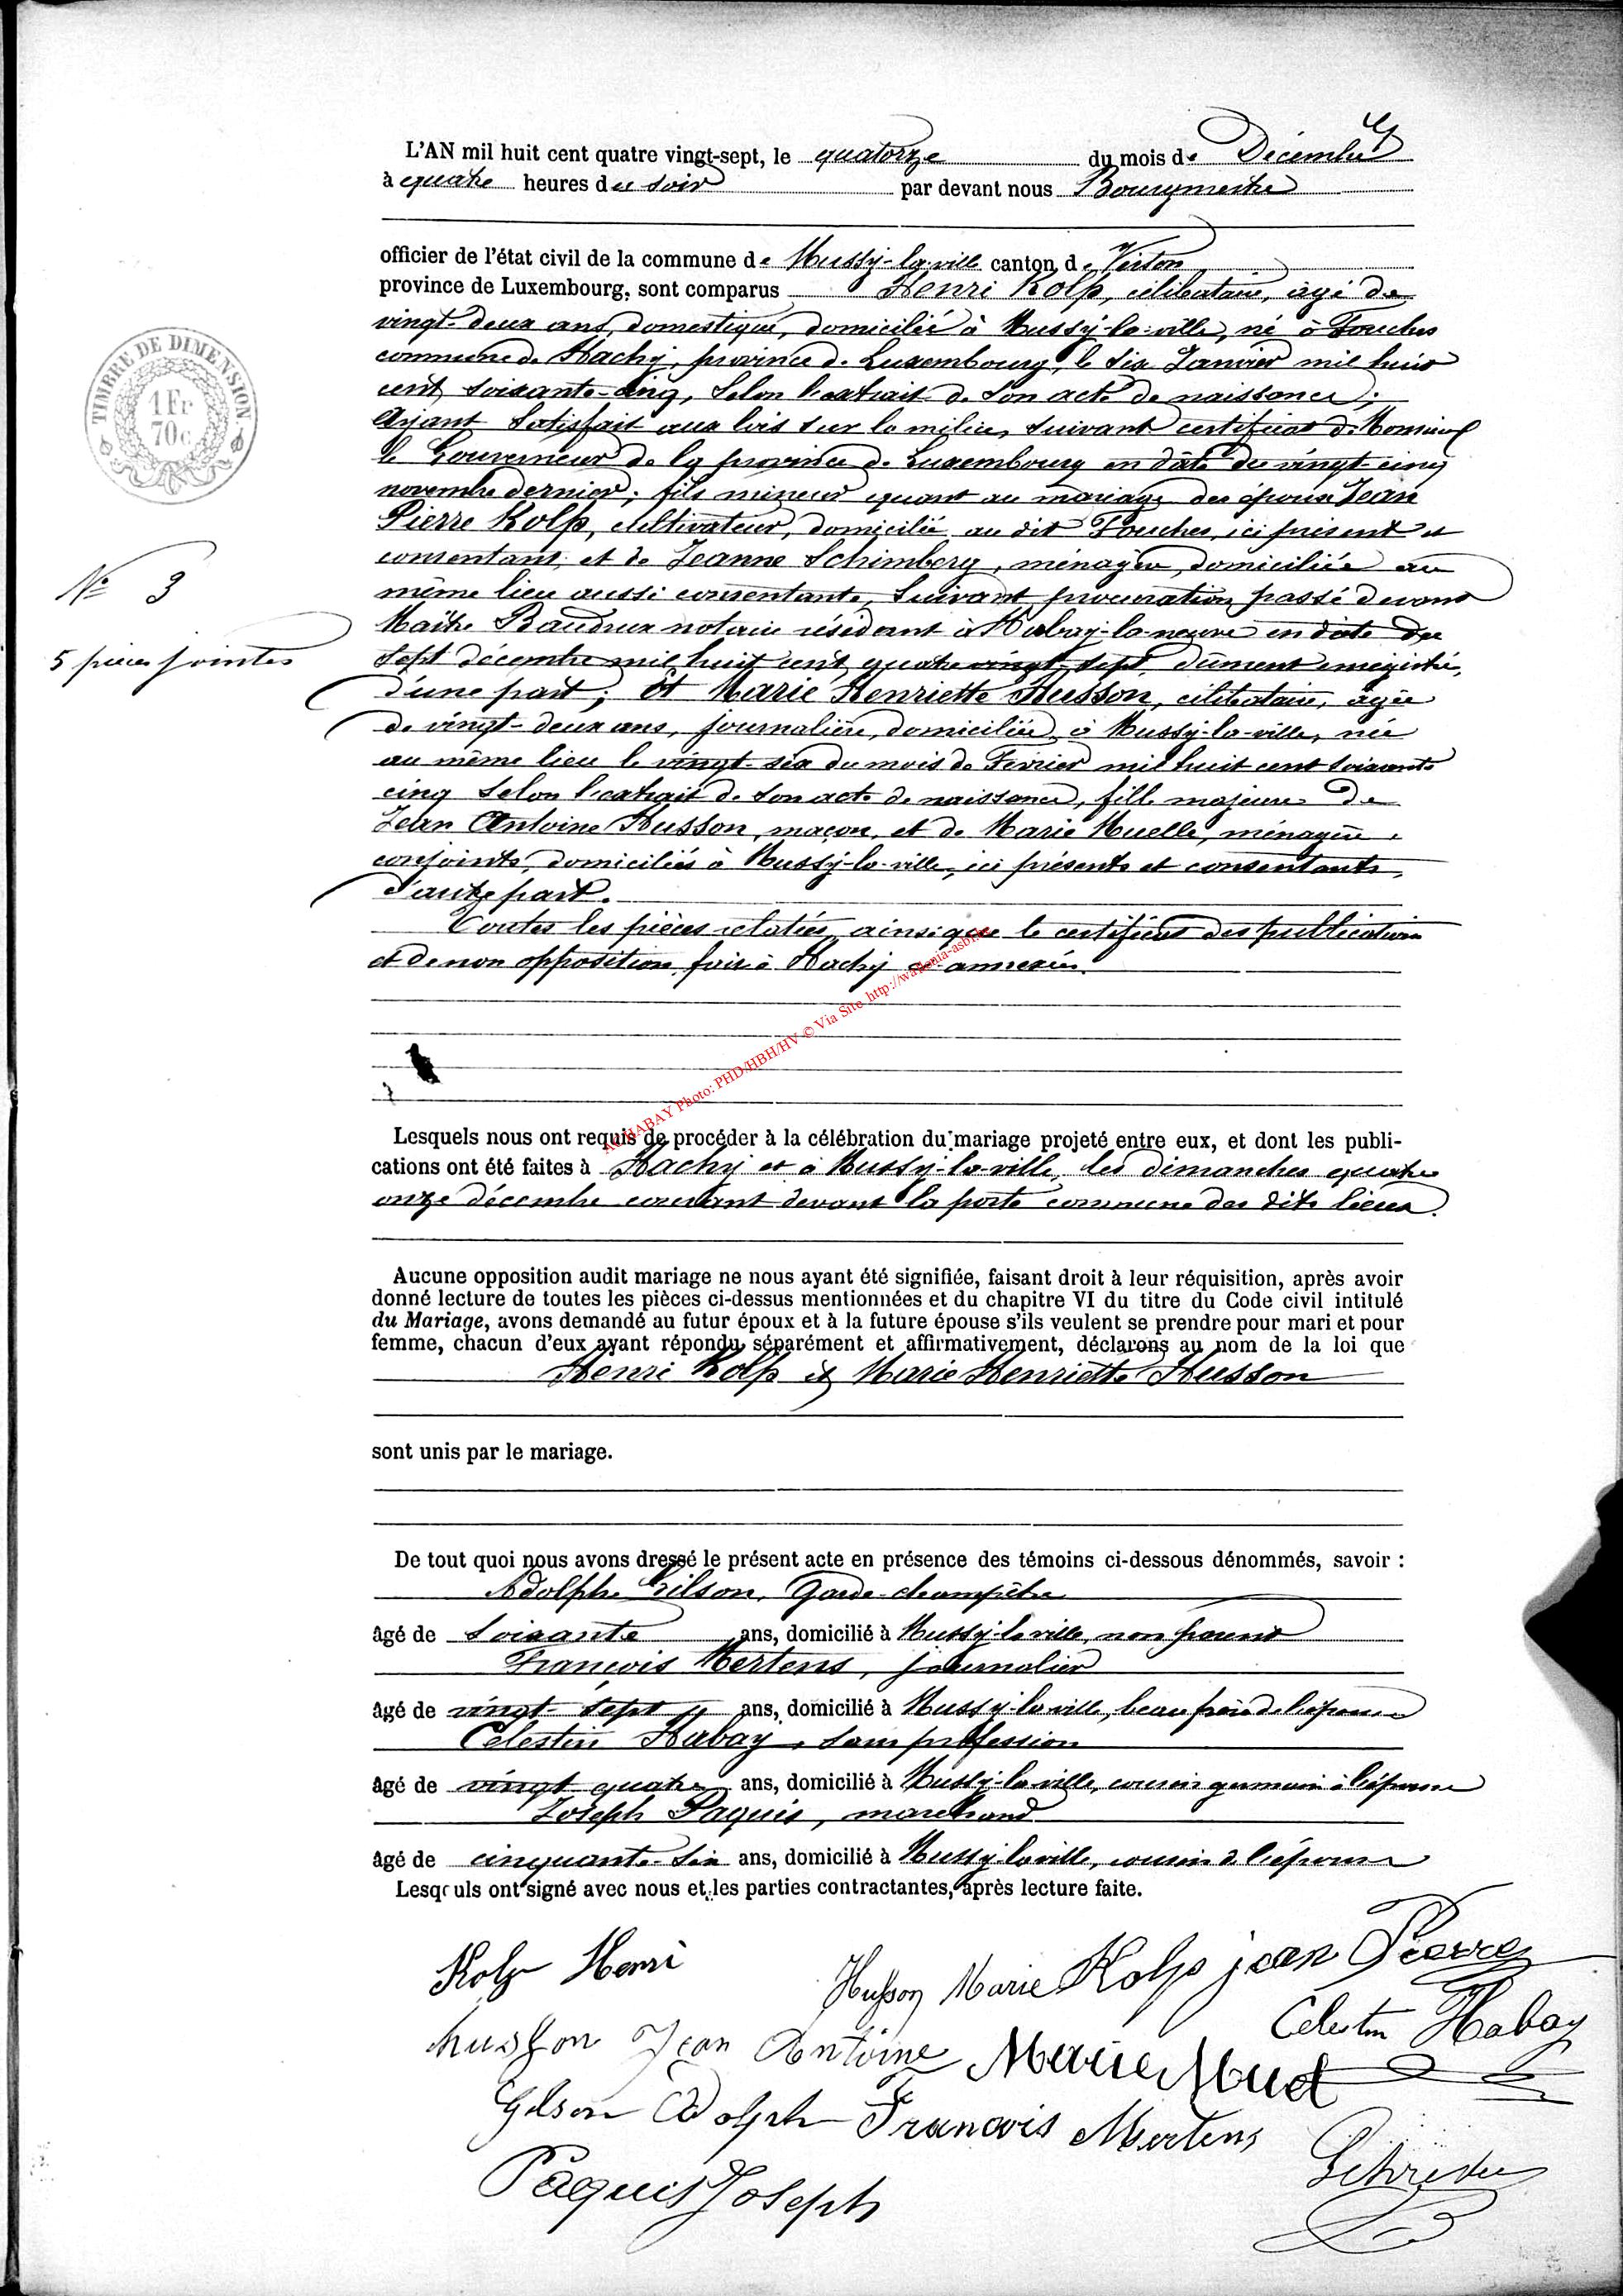 L'AN mil huit cent quatre vingt-sept, le quatorze du mois de Décembre
à quatre heures du soir par devant nous Bourgmestre
officier de l'état civil de la commune de Mussy-la-ville canton de Virton
province de Luxembourg, sont comparus Henri Kolp, célibataire, âgé de
vingt-deux ans, domestique, domicilié à Mussy-la-ville, né à Fouches
commune de Hachy, province de Luxembourg, le six Janvier mil huit
cent soixante-cinq, selon l'extrait de son acte de naissance;
Ayant satisfait aux lois sur la milice, suivant certificat de Monsieur
le Gouverneur de la province de Luxembourg en date du vingt-cinq
novembre dernier; fils mineur quant au mariage des époux Jean
Pierre Kolp, cultivateur, domicilié au dit Fouches, ici présent et
consentant, et de Jeanne Schimberg, ménagère, domiciliée au
même lieu aussi consentante, suivant procuration passé devant
Maître Baudrux notaire résidant à Habay-la-neuve en date du
sept décembre mil huit cent quatre vingt sept, dûment enregistré,
d'une part; Et Marie Henriette Husson, célibataire, âgée
de vingt-deux ans, journalière, domiciliée à Mussy-la-ville, née
au même lieu le vingt-six du mois de Février mil huit cent soixante
cinq selon l'extrait de son acte de naissance, fille majeure de
Jean Antoine Husson, maçon, et de Marie Muelle, ménagère,
conjoints, domiciliés à Mussy-la-ville, ici présents et consentants,
d'autre part.
Toutes les pièces relatées, ainsi que le certificat des publications
et de non opposition fait à Hachy annexées.
Lesquels nous ont requis de procéder à la célébration du mariage projeté entre eux, et dont les publi-
cations ont été faites à Hachy et à Mussy-la-ville, les dimanches quatre
onze décembre courant devant la porte commune des dits lieux.
Aucune opposition audit mariage ne nous ayant été signifiée, faisant droit à leur réquisition, après avoir
donné lecture de toutes les pièces ci-dessus mentionnées et du chapitre VI du titre du Code civil intitulé
du Mariage, avons demandé au futur époux et à la future épouse s'ils veulent se prendre pour mari et pour
femme, chacun d'eux ayant répondu séparément et affirmativement, déclarons au nom de la loi que
Henri Kolp et Marie Henriette Husson
sont unis par le mariage.
De tout quoi nous avons dressé le présent acte en présence des témoins ci-dessous dénommés, savoir :
Adolphe Gilson, Garde-champêtre
âgé de soixante ans, domicilié à Mussy-la-ville, non parent
François Mertens, journalier
âgé de vingt-sept ans, domicilié à Mussy-la-ville, beau frère de l'épouse
Célestin Habay, sans profession
âgé de vingt quatre ans, domicilié à Mussy-la-ville, cousin germain à l'épouse
Joseph Paquis, marchand
âgé de cinquante-six ans, domicilié à Mussy-la-ville, cousin à l'épouse
Lesquels ont signé avec nous et les parties contractantes, après lecture faite.
Kolp Henri
Husson Marie Kolp jean Pierre
Celestin Habay
husson Jean Antoine Marie Muel
Gilson Adolph Francois Mertens
Paquis Joseph
TIMBRE DE DIMENSION
1 Fr
70c
N° 3
5 pièces jointes
AC HABAY Photo: PHD/HBH/HV © Via Site http://wallonia-asbl.be